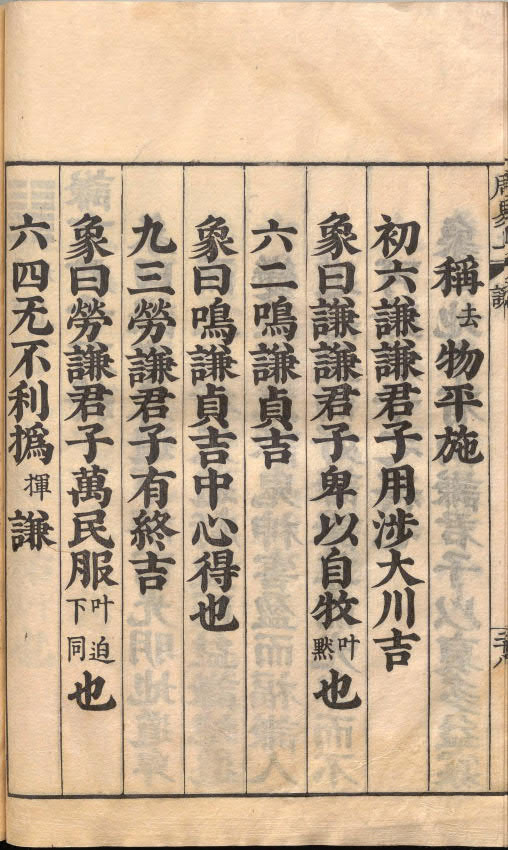 稱去物平施
初六謙謙君子用涉大川吉
象曰謙謙君子卑以自牧叶黙也
六二鳴謙貞吉
象曰鳴謙貞吉中心得也
九三勞謙君子有終吉
象曰勞謙君子萬民服叶迫下同也
六四无不利撝揮謙